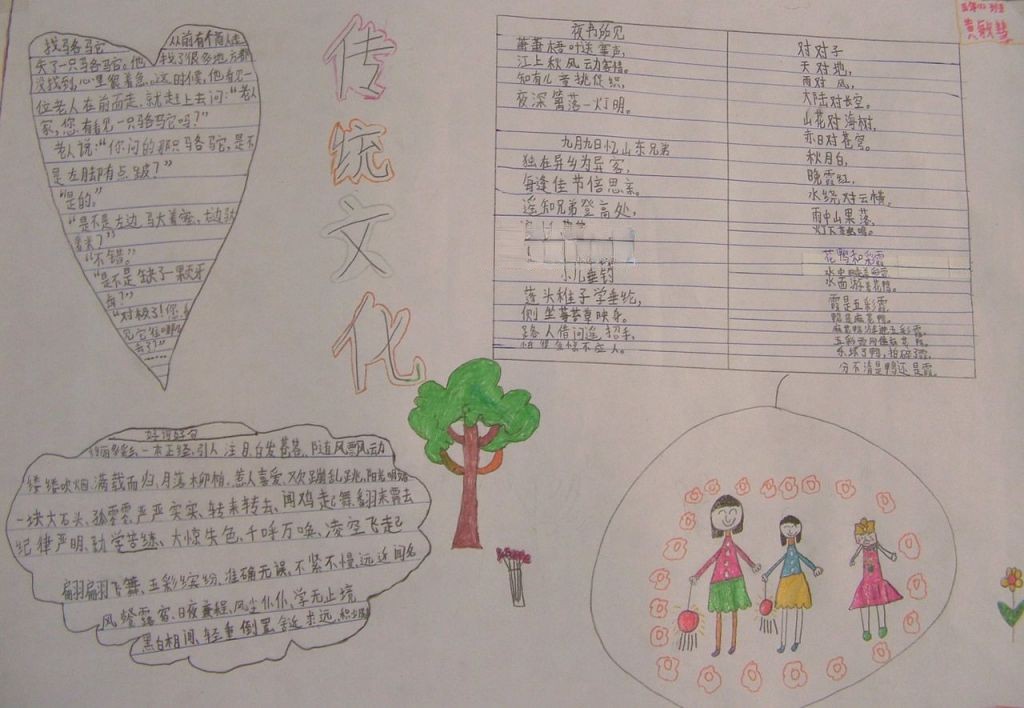 找骆驼
从前有个商人走
失了一只骆驼。他找了很多地方都
没找到,心里很着急。这时候,他看见一
位老人在前面走,就赶上去问:“老人
家,您看见一只骆驼吗?”
老人说:“你问的那只骆驼,是不
是左脚有点跛?”
“是的。”
“是不是左边
“不错。”
“是不是缺了一颗牙
“对极了!您
见它在哪
......
传统文化
夜书所见
萧萧梧叶送寒声,
江上秋风动客情。
知有儿童挑促织,
夜深篱落一灯明。
九月九日忆山东兄弟
独在异乡为异客,
每逢佳节倍思亲。
遥知兄弟登高处,
小儿垂钓
蓬头稚子学垂纶,
侧坐莓苔草映身。
路人借问遥招手,
应人。
对对子
天对地,
雨对风,
大陆对长空。
山花对海树,
赤日对苍穹。
秋月白,
晚霞红,
水绕对云横。
雨中山果落,
花鸭和彩霞
水面游
霞是五彩霞,
鸭是麻花鸭。
分不清是鸭还是霞
黄敏慧
好词好句
一本正经、引人注目、白发苍苍、随风飘动
缕缕炊烟、满载而归、月落柳梢、惹人喜爱、欢蹦乱跳、阳光明媚
一块大石头、孤零零、严严实实、转来转去、闻鸡起舞、翻来霄去
纪律严明、勤学苦练、大惊失色、千呼万唤、凌空飞起
翩翩飞舞、五彩缤纷、准确无误、不紧不慢、远近闻名
风餐露宿、日夜兼程、风尘仆仆、学无止境
黑白相间、轻重倒置、舍近求远